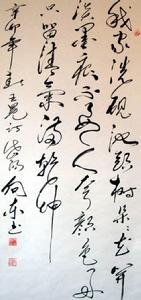 我家洗砚池头树朵朵花开
淡墨痕不要人夸颜色好
只留清气满乾坤
辛卯年春王冕诗 向东书